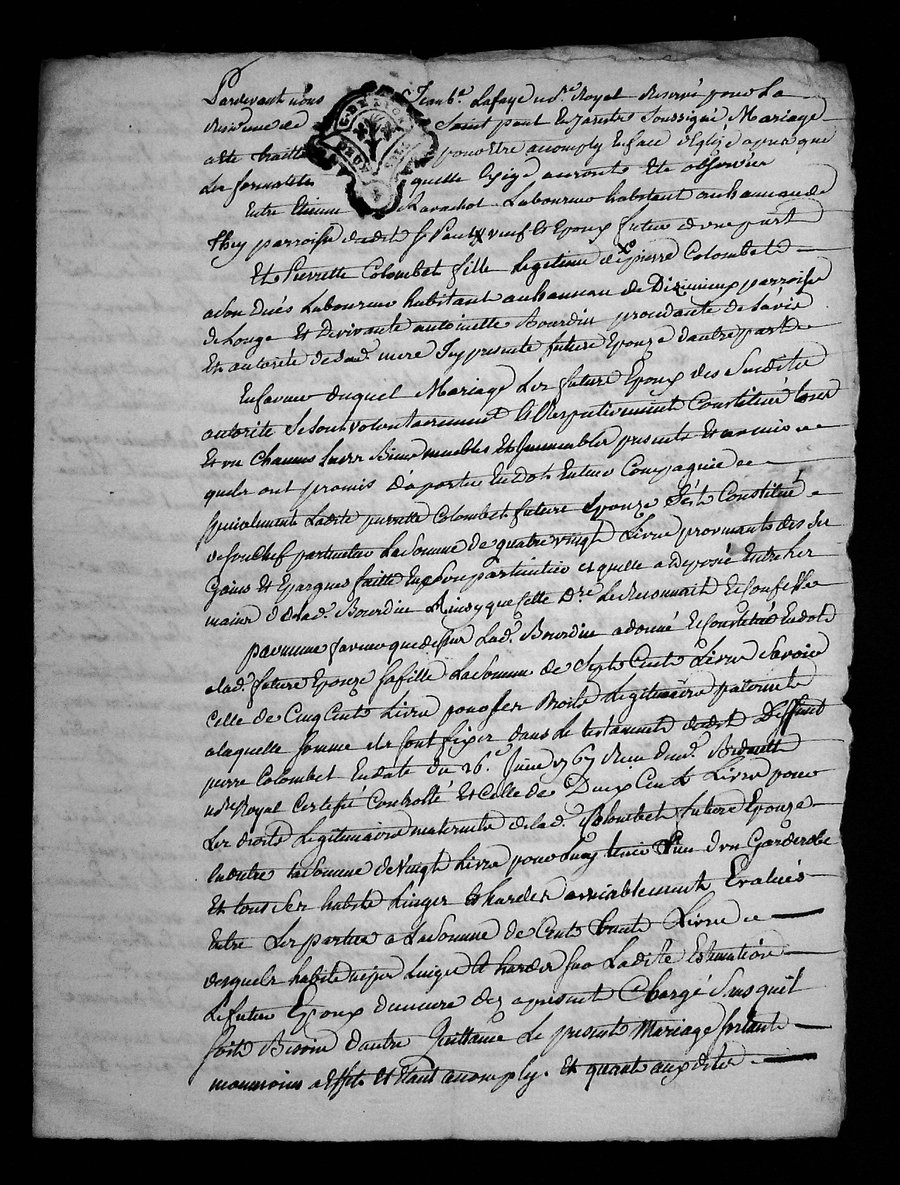 Pardevant nous Jean bte. Lafaye nore. Royal Reservé pour La
Residence de Saint paul En Jarestz Soussigné, Mariage
a eté traitté pour Etre accomply En face d'Eglize apres que
Les formalités quelle Exige auronts Eté observées
Entre Etienne Ravachol Laboureur habitant au hameau de
They parroisse dudit St. Paul veuf Et Epoux futur d'une part
Et Pierrette Colombet fille Legitime de pierre Colombet
a son Decés Laboureur habitant au hameau de Dizimieux parroisse
de Longe Et de vivante antoinette Bourdin procedante de L'avis
Et autorité de Sad. mere Icy presente future Epouze d'autre part
En faveur duquel Mariage Les futurs Epoux des Susdittes
autorité Se Sont volontairement Et Respectivement Constitués tous
Et un Chacuns Leurs Biens meubles Et Immeubles presents Et avenir
quels ont promis d'aporter En dot En leur Compagnie
specialment Ladite pierrette Colombet future Epouze S'est Constitué
de Son Chef particulier La Somme de quatre vingt Livre provenants des Ses
Gains Et Epargnes faitte En Son particulier et quelle a deposé Entre Les
mains de Lad. Bourdin Ainsy que Cette Dre. Le Reconnait Et Confesse
par meme faveur que dessus Lad. Bourdin a donné Et Constitué En dot
a Lad. future Epouze Sa fille La Somme de Sept Cents Livre Savoir
Celle de Cinq Cents Livre pour Ses Droits Legitimaire paternels
a laquelle Somme ils Sont fixés dans Le testament dudit Deffunt
pierre Colombet En date du 26e. Juin 1767 Recu
nore Royal Certifié Controllé Et Celle de Deux Cents Livre pour
Les droits Legitimaire maternels de Lad. Colombet future Epouze
En outre La Somme de Vingt Livre pour Luy tenir Lieu d'un Garderobe
Et tous Ses habits Linges Et hardes amiablement Evalués
Entre Les parties a La Somme de Cents trente Livre
desquels habits Linge Et hardes Sur Ladite Estimation
Le futur Epoux demeure des apresent Chargé Sans quil
Soit Besoin d'autre Quittance Le present Mariage Sortant
neanmoins a Effet Et Etant accomply. Et quant aux dites